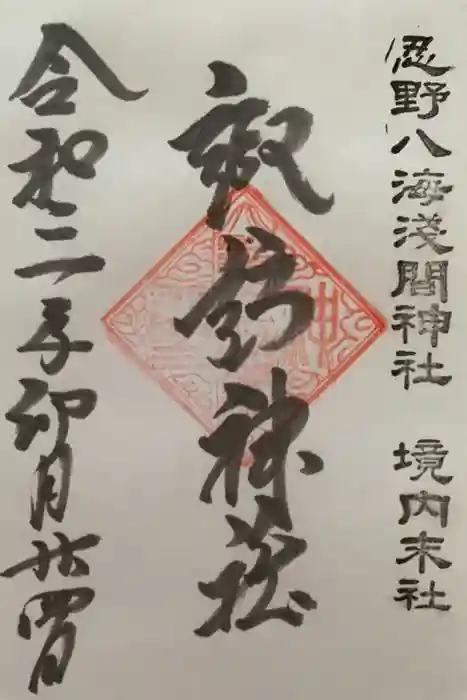 忍野八海淺間神社 境内末社
神社
令和二年卯月廿四日